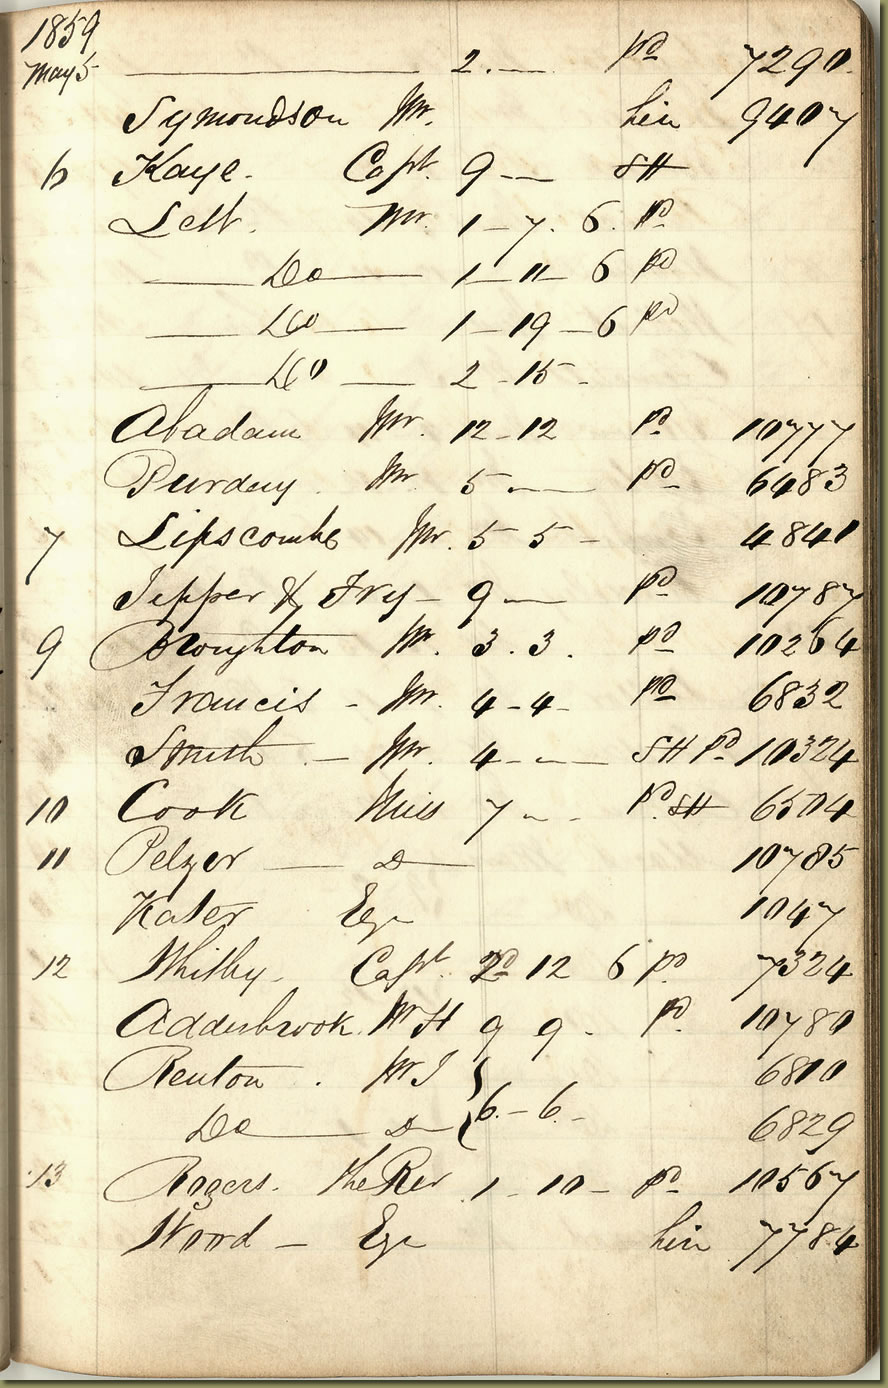 1859
May 5 ——— 2.— pd 7290
Symondson Mr. hire 9407
6 Kaye. Capt. 9 —— SH
Lett. Mr. 1 - 7. 6. pd
—— Do —— 1 - 11 - 6 pd
—— Do —— 1 - 19 - 6 pd
—— Do —— 2 - 15 -
Abadam Mr. 12 - 12 pd 10777
Purday. Mr. 5 —— pd 6483
7 Lipscombe Mr. 5 5 - 4840
Tepper & Frey - 9 —— pd 10787
9 Broughton Mr. 3. 3. pd 10264
Francis - Mr. 4 - 4 - pd 6832
Smith. — Mr. 4 - — SH pd 10324
10 Cook Miss 7 - - pd. SH 6504
11 Pelzer —— D —— 10785
Kater Esqr 1047
12 Whitby. Capt. 12 6 pd 7324
Addisbrook. Mr H 9 9 - pd. 10780
Renton. Mr J } 6810
Do —— D — } 6. - 6. - 6829
13 Rogers. the Rev 1 - 10 - pd 10567
Wood — Esqr hire 7784